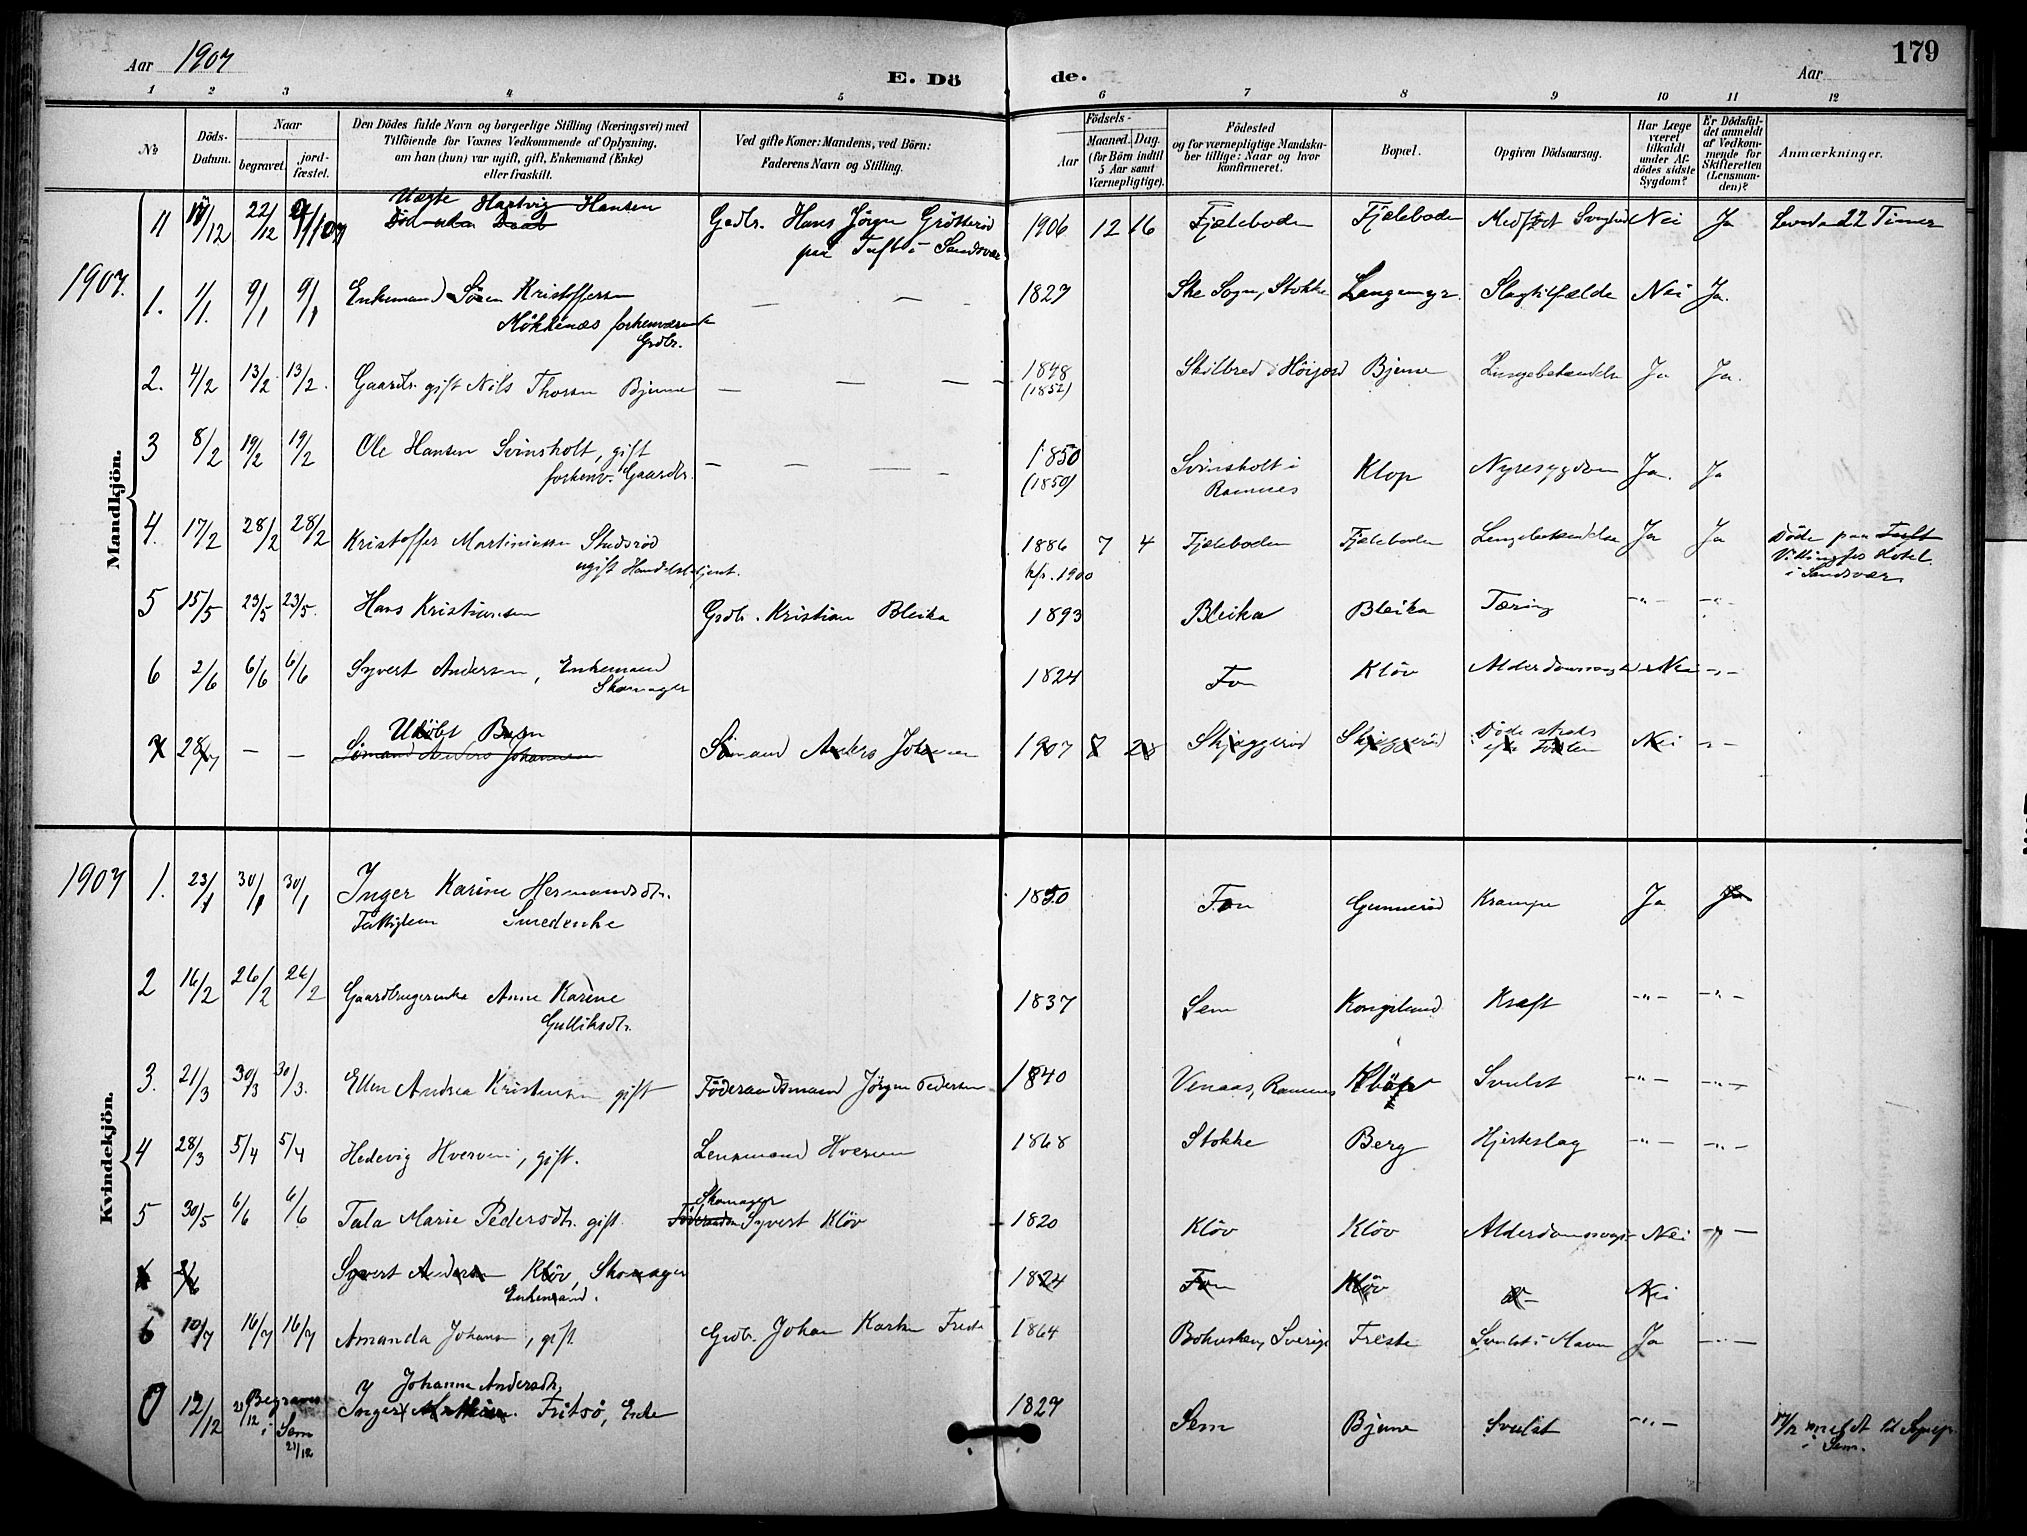 Aar 1907
E. Dö de.
Aar
179
1 2 3 4 5 6 7 8 9 10 11 12
№
Döds-Datum.
Naar
begravet.
jord-fæstet.
Den Dödes fulde Navn og borgerlige Stilling (Næringsvei) med
Tilföiende for Voxnes Vedkommende af Oplysning,
om han (hun) var ugift, gift, Enkemand (Enke)
eller fraskilt.
Ved gifte Koner: Mandens, ved Börn:
Faderens Navn og Stilling.
Födsels-
Aar
Maaned. Dag.
(for Börn indtil
5 Aar samt
Værnepligtige).
Födested
og for værnepligtige Mandska-
ber tillige: Naar og hvor
konfirmeret.
Bopæl.
Opgiven Dödsaarsag.
Har Læge
været
tilkaldt
under Af-
dödes sidste
Sygdom?
Er Dödsfal-
det anmeldt
af Vedkom-
mende for
Skifteretten
(Lensman-
den)?
Anmærkninger.
Mandkjön.
11 17/12 22/12 Uægte Hartvig Hansen Gbr. Hans Jörgen Grötteröd 1906 12 16 Fjæleboden Fjæleboden Medfödt Svaghed Nei Ja Levede 22 Timer
Död uden Daab paa Tuft i Sandsvær
1907.
1. 1/1. 9/1 9/1 Enkemand Sören Kristoffersen — — 1827 Ske Sogn, Stokke Langemyr. Slagtilfælde Nei Ja.
Mökkenæs forhenværende
Grdbr.
2. 4/2 13/2 13/2. Gaardbr. gift Nils Thorsen Bjune — — — 1848 Skilbred i Höijord Bjune Lungebetændelse Ja Ja.
(1852)
3 8/2 19/2 19/2 Ole Hansen Svinsholt, gift — — — — 1850 Svinsholt i Klop Nyresygdom Ja. Ja
forhenv. Gaardbr. (1850) Ramnes
4. 17/2 28/2 28/2 Kristoffer Martiniussen Studsröd 1886 7 4 Fjæleboden Fjæleboden Lungebetændelse Ja Ja Döde paa Tuft
ugift Handelsbetjent. kfr. 1900 Vikingfos Hotel
i Sandsvær
5 15/5 23/5 23/5. Hans Kristiansen Grdbr. Kristian Bleika 1893 Bleika Bleika Tæring -"- -"-
6 2/6 6/6 6/6 Syvert Andersen, Enkemand 1824 Fon Klöv Alderdomssvaghed Nei -"-
Skomager
7 28/7 — — Udöbt Barn Sömand Anders Johansen 1907 7 28 Skjæggeröd Skjæggeröd Döde straks Nei -"-
Sömand Anders Johansen efter Födslen
Kvindekjön.
1907 1. 23/1 30/1 30/1 Inger Karine Hermansdtr. 1850 Fon Gunneröd Krampe Ja Ja
Fattiglem Smedenke
2 16/2 26/2 26/2 Gaardbrugerenke Anne Karine 1837 Sem Kongslund Kræft -"- -"-
Gulliksdtr.
3. 21/3 30/3 30/3. Ellen Andrea Kristensen gift Föderaadsmand Jörgen Pedersen 1840 Venaas, Ramnes Klöp Svulst -"- -"-
4 28/3 5/4 5/4 Hedevig Hverven, gift. Lensmand Hverven 1868 Stokke Berg Hjerteslag -"- -"-
5 30/5 6/6 6/6 Tala Marie Pedersdtr. gift. Skomager Syvert Klöv 1820 Klöv Klöv Alderdomssvagh. Nei -"-
2/6 Syvert Andersen Klöv, Skomager 1824 Fon Klöv Nei
Enkemand.
6 10/7 16/7 16/7 Amanda Johansen, gift Grdbr. Johan Karlsen Freste 1864 Bohuslen, Sverige Freste Svulst i Maven Ja -"-
7 12/12 21/12 Begraves Johanne Andersdtr. 1827 Sem Bjune Svulst -"- 17/12 meldt til Sognepr.
i Sem 21/12 Inger Mathisen Fritsö, Enke i Sem.